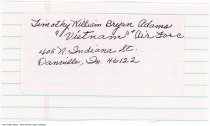 Timothy William Bryan Adams
"Vietnam" Air Force
405 N. Indiana St.
Danville, In. 46122